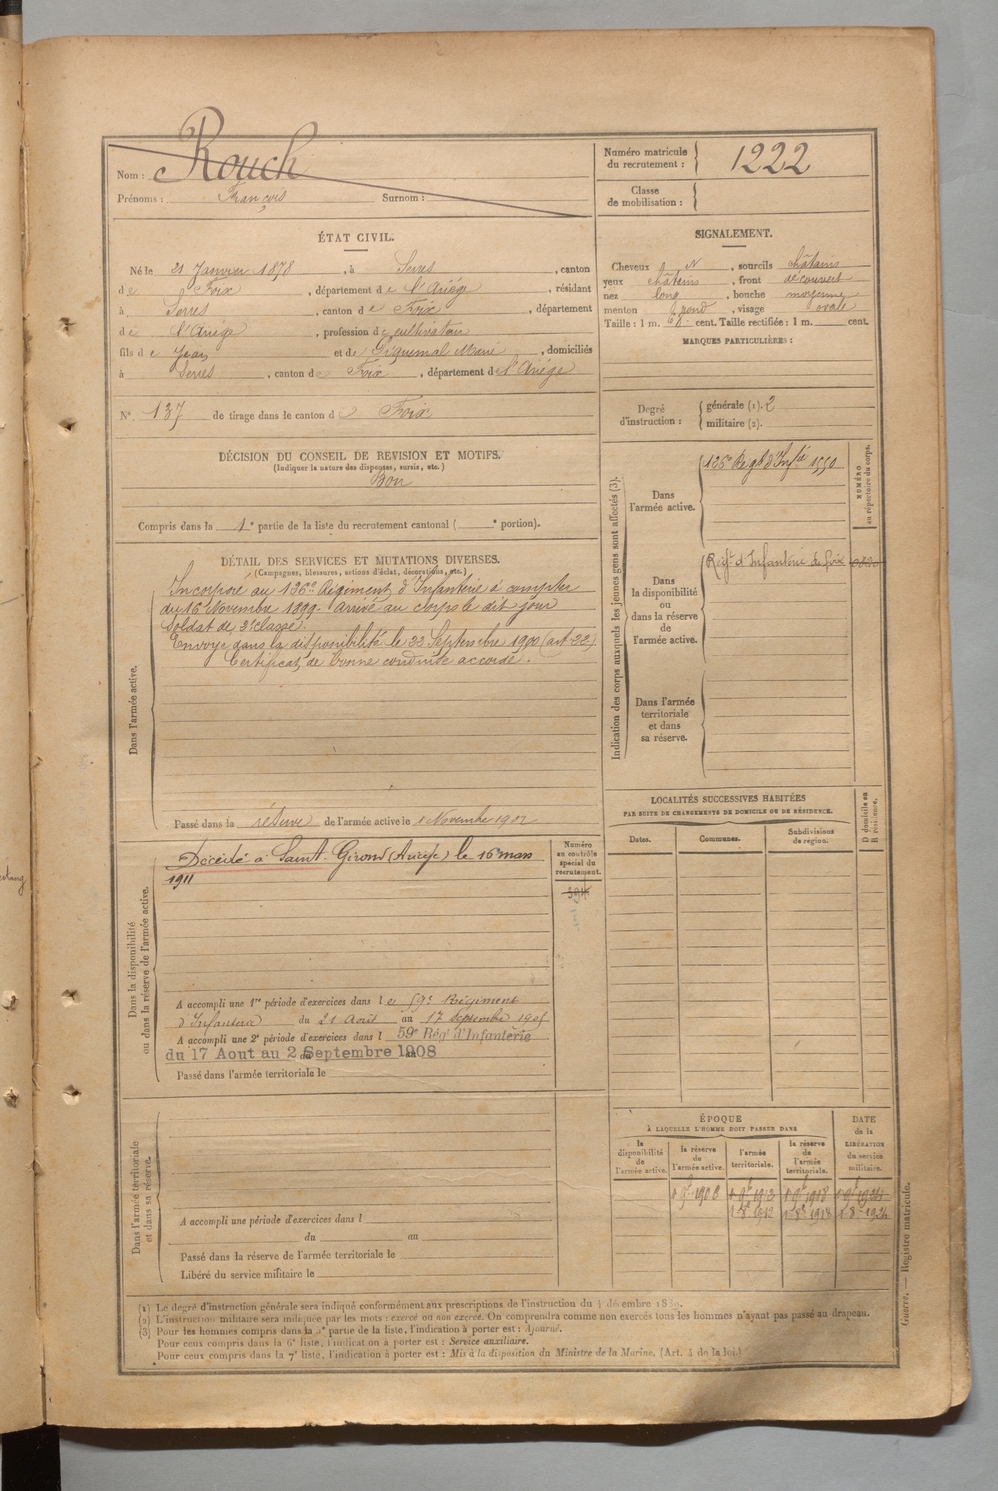 Nom : Rouch
Prénoms : François Surnom :
Numéro matricule du recrutement : 1222
Classe de mobilisation :
ÉTAT CIVIL.
Né le 21 Janvier 1878, à Serres, canton
de Foix, département de l'Ariège, résidant
à Serres, canton de Foix, département
de l'Ariège, profession de cultivateur
fils de Jean et de Marie, domiciliés
à Serres, canton de Foix, département de l'Ariège
N° 137 de tirage dans le canton de Foix
SIGNALEMENT.
Cheveux N, sourcils châtains
yeux châtains, front découvert
nez long, bouche moyenne
menton rond, visage ovale
Taille : 1 m. cent. Taille rectifiée : 1 m. cent.
MARQUES PARTICULIÈRES :
Degré d'instruction : générale (1). 2
militaire (2).
DÉCISION DU CONSEIL DE REVISION ET MOTIFS.
(Indiquer la nature des dispenses, sursis, etc.)
Bon
Compris dans la 1e partie de la liste du recrutement cantonal ( e portion).
DÉTAIL DES SERVICES ET MUTATIONS DIVERSES.
(Campagnes, blessures, actions d'éclat, décorations, etc.)
Dans l'armée active.
Incorporé au 126e Régiment d'Infanterie à compter
du 16 Novembre 1899. Arrivé au corps le dit jour
Soldat de 2e classe.
Envoyé dans la disponibilité le 22 Septembre 1900 (art. 22).
Certificat de bonne conduite accordé.
Passé dans la réserve de l'armée active le 1 Novembre 1902
Indication des corps auxquels les jeunes gens sont affectés (3).
NUMÉRO au répertoire du corps.
Dans l'armée active.
126e Regt d'Infie 1550
Dans la disponibilité ou dans la réserve de l'armée active.
Régt d'Infanterie de Foix
Dans l'armée territoriale et dans sa réserve.
LOCALITÉS SUCCESSIVES HABITÉES
PAR SUITE DE CHANGEMENTS DE DOMICILE OU DE RÉSIDENCE.
Dates. Communes. Subdivisions de région. D domicile ou R résidence.
Dans la disponibilité ou dans la réserve de l'armée active.
Numéro au contrôle spécial du recrutement.
Décédé à Saint-Girons (Ariège) le 16 mars
1911
A accompli une 1re période d'exercices dans le 59e Régiment
d'Infanterie du 21 Août au 17 Septembre 1905
A accompli une 2e période d'exercices dans l 59e Rég d'Infanterie
du 17 Aout au 2 Septembre 1908
Passé dans l'armée territoriale le
Dans l'armée territoriale et dans sa réserve.
A accompli une période d'exercices dans l
du au
Passé dans la réserve de l'armée territoriale le
Libéré du service militaire le
ÉPOQUE
À LAQUELLE L'HOMME DOIT PASSER DANS
DATE de la LIBÉRATION du service militaire.
la disponibilité de l'armée active. la réserve de l'armée active. l'armée territoriale. la réserve de l'armée territoriale.
(1) Le degré d'instruction générale sera indiqué conformément aux prescriptions de l'instruction du 4 décembre 1889.
(2) L'instruction militaire sera indiquée par les mots : exercé ou non exercé. On comprendra comme non exercés tous les hommes n'ayant pas passé au drapeau.
(3) Pour les hommes compris dans la 5e partie de la liste, l'indication à porter est : Ajourné.
Pour ceux compris dans la 6e liste, l'indication à porter est : Service auxiliaire.
Pour ceux compris dans la 7e liste, l'indication à porter est : Mis à la disposition du Ministre de la Marine. (Art. 4 de la loi.)
Guerre. — Registre matricule.